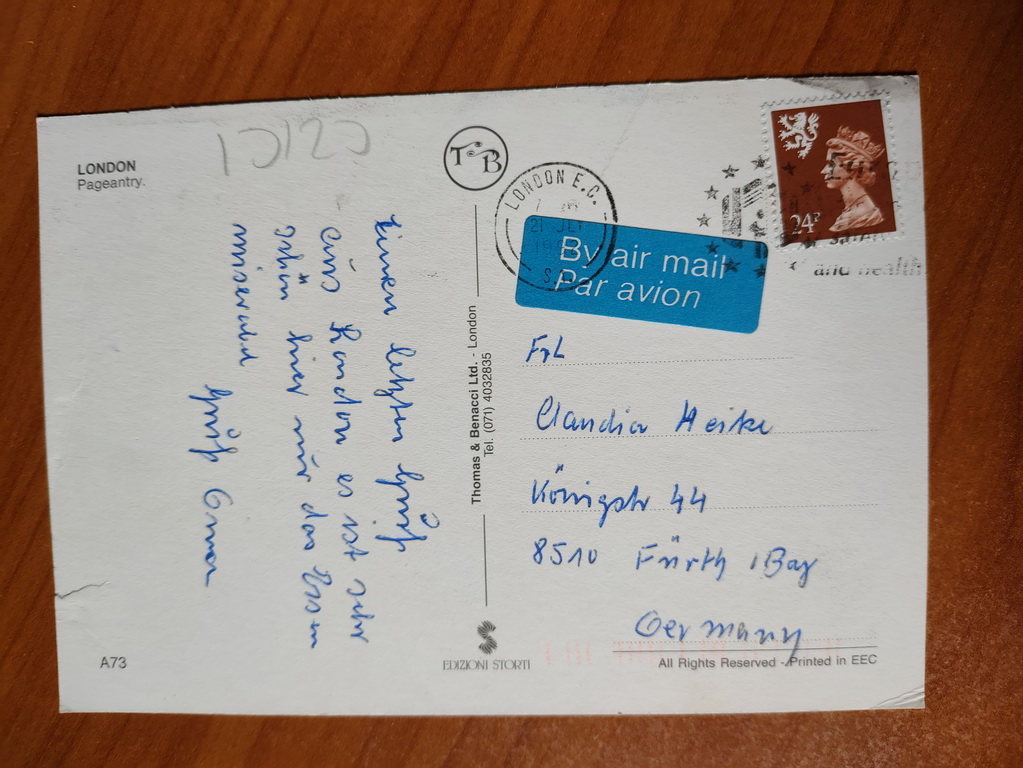 LONDON
Pageantry.
Einen letzten Gruß
aus London es ist sehr
schön hier nur das Essen
miserabel
Gruß Oma
A73
Thomas & Benacci Ltd. - London
Tel. (071) 4032835
EDIZIONI STORTI
TB
LONDON E.C.
By air mail
Par avion
24P
and health
Frl
Claudia Heike
Königstr 44
8510 Fürth / Bay
Germany
All Rights Reserved - Printed in EEC